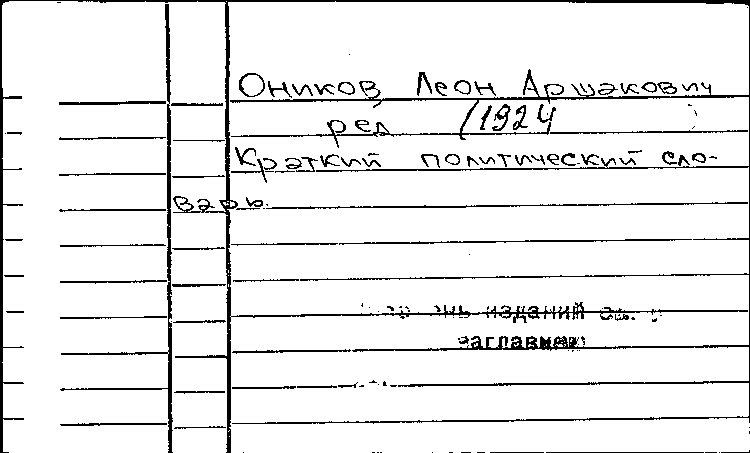 Оников Леон Аршакович
ред (1924 )
Краткий политический сло-
варь.
изданий
заглавию